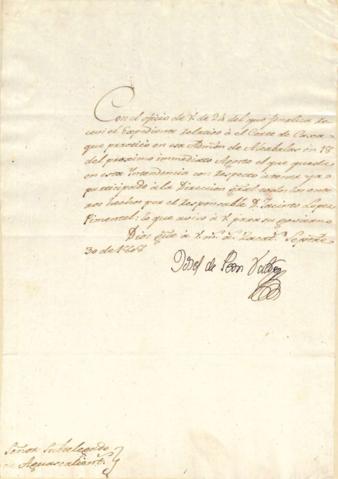 Con el oficio de V. de 24 del que finaliza re
civí el Expediente relativo à el Corte de Caxa
que practicó en esa Admon de Alcabalas en 18
del proximo inmediato Agosto el que quede
en esta Intendencia con respecto
participado à la Direccion gral
hechos por el responsable D. Jacinto Lopez
Pimentel; lo que aviso à V. para su govierno
Dios gũe à V. m.s a.s Zacat.s Septre
30 de
Josef de Leon Valdes
Señor Subdelegado
de Aguascalient.s